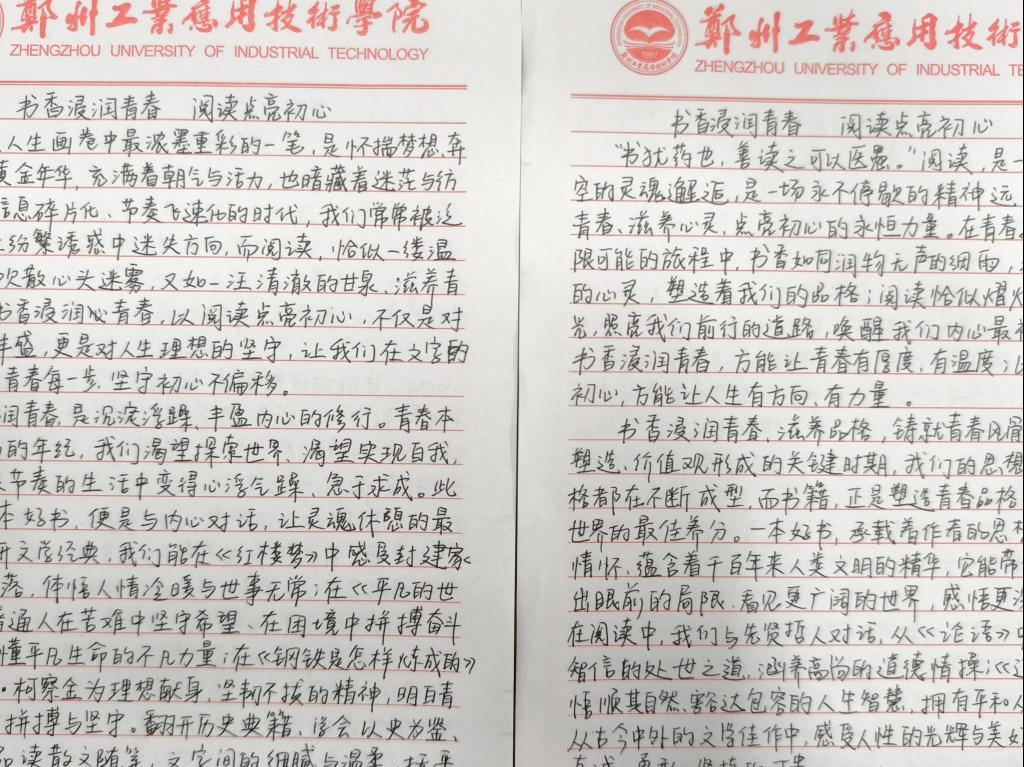 鄭州工業應用技術學院
ZHENGZHOU UNIVERSITY OF INDUSTRIAL TECHNOLOGY
书香浸润青春 阅读点亮初心
人生画卷中最浓墨重彩的一笔,是怀揣梦想、奔
黄金年华,充满着朝气与活力,也暗藏着迷茫与彷
信息碎片化、节奏飞速化的时代,我们常常被泛
纷繁诱惑中迷失方向,而阅读,恰似一缕温
吹散心头迷雾,又如一汪清澈的甘泉、滋养青
书香浸润心青春,以阅读点亮初心,不仅是对
丰盛,更是对人生理想的坚守,让我们在文字的
青春每一步,坚守初心不偏移。
润青春,是沉淀浮躁、丰盈内心的修行。青春本
的年纪,我们渴望探索世界、渴望实现自我,
节奏的生活中变得心浮气躁、急于求成。此
本好书,便是与内心对话,让灵魂休憩的最
开文学经典,我们能在《红楼梦》中感受封建家
落,体悟人情冷暖与世事无常;在《平凡的世
普通人在苦难中坚守希望、在困境中拼搏奋斗
懂平凡生命的不凡力量;在《钢铁是怎样炼成的》
·柯察金为理想献身、坚韧不拔的精神,明白青
拼搏与坚守。翻开历史典籍,学会以史为鉴、
品读散文随笔,文字间的细腻与温柔,抚平
1997
鄭州工業應用技術
ZHENGZHOU UNIVERSITY OF INDUSTRIAL TE
书香浸润青春 阅读点亮初心
“书犹药也,善读之可以医愚。”阅读,是一
空的灵魂邂逅,是一场永不停歇的精神远
青春、滋养心灵,点亮初心的永恒力量。在青春
限可能的旅程中,书香如同润物无声的细雨,
的心灵,塑造着我们的品格;阅读恰似熠
光,照亮我们前行的道路,唤醒我们内心最
书香浸润青春,方能让青春有厚度、有温度;
初心,方能让人生有方向、有力量。
书香浸润青春、滋养品格,铸就青春风骨
塑造、价值观形成的关键时期,我们的思想
格都在不断成型,而书籍,正是塑造青春品格
世界的最佳养分。一本好书,承载着作者的思想
情怀、蕴含着千百年来人类文明的精华,它能带
出眼前的局限、看见更广阔的世界,感悟更
在阅读中,我们与先贤哲人对话,从《论语》
智信的处世之道,涵养高尚的道德情操;《
悟顺其自然、豁达包容的人生智慧,拥有平和
从古今中外的文学佳作中,感受人性的光辉与美好